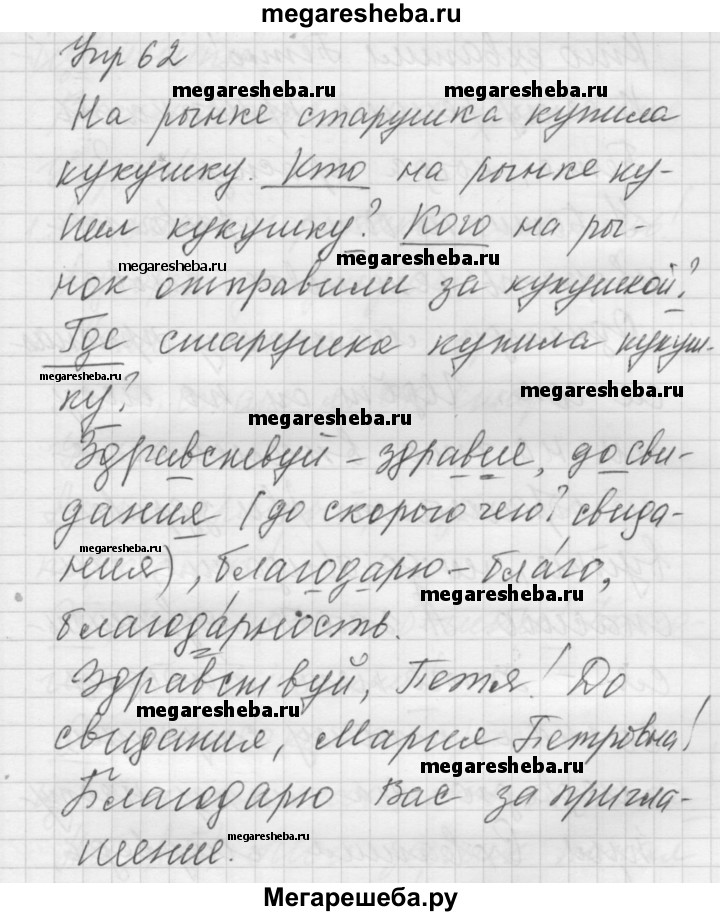 megaresheba.ru
Упр 62
megaresheba.ru megaresheba.ru
На рынке старушка купила
кукушку. Кто на рынке ку-
пил кукушку? Кого на ры-
megaresheba.ru megaresheba.ru
нок отправили за кукушкой?
Где старушка купила кукуш-
megaresheba.ru megaresheba.ru
ку?
megaresheba.ru
Здравствуй - здравие, до сви-
дания (до скорого чего? свида-
megaresheba.ru
ния), благодарю - благо,
megaresheba.ru
благодарность.
Здравствуй, Петя! До
megaresheba.ru
свидания, Мария Петровна!
megaresheba.ru
Благодарю Вас за пригла-
megaresheba.ru
шение.
Мегарешеба.ру